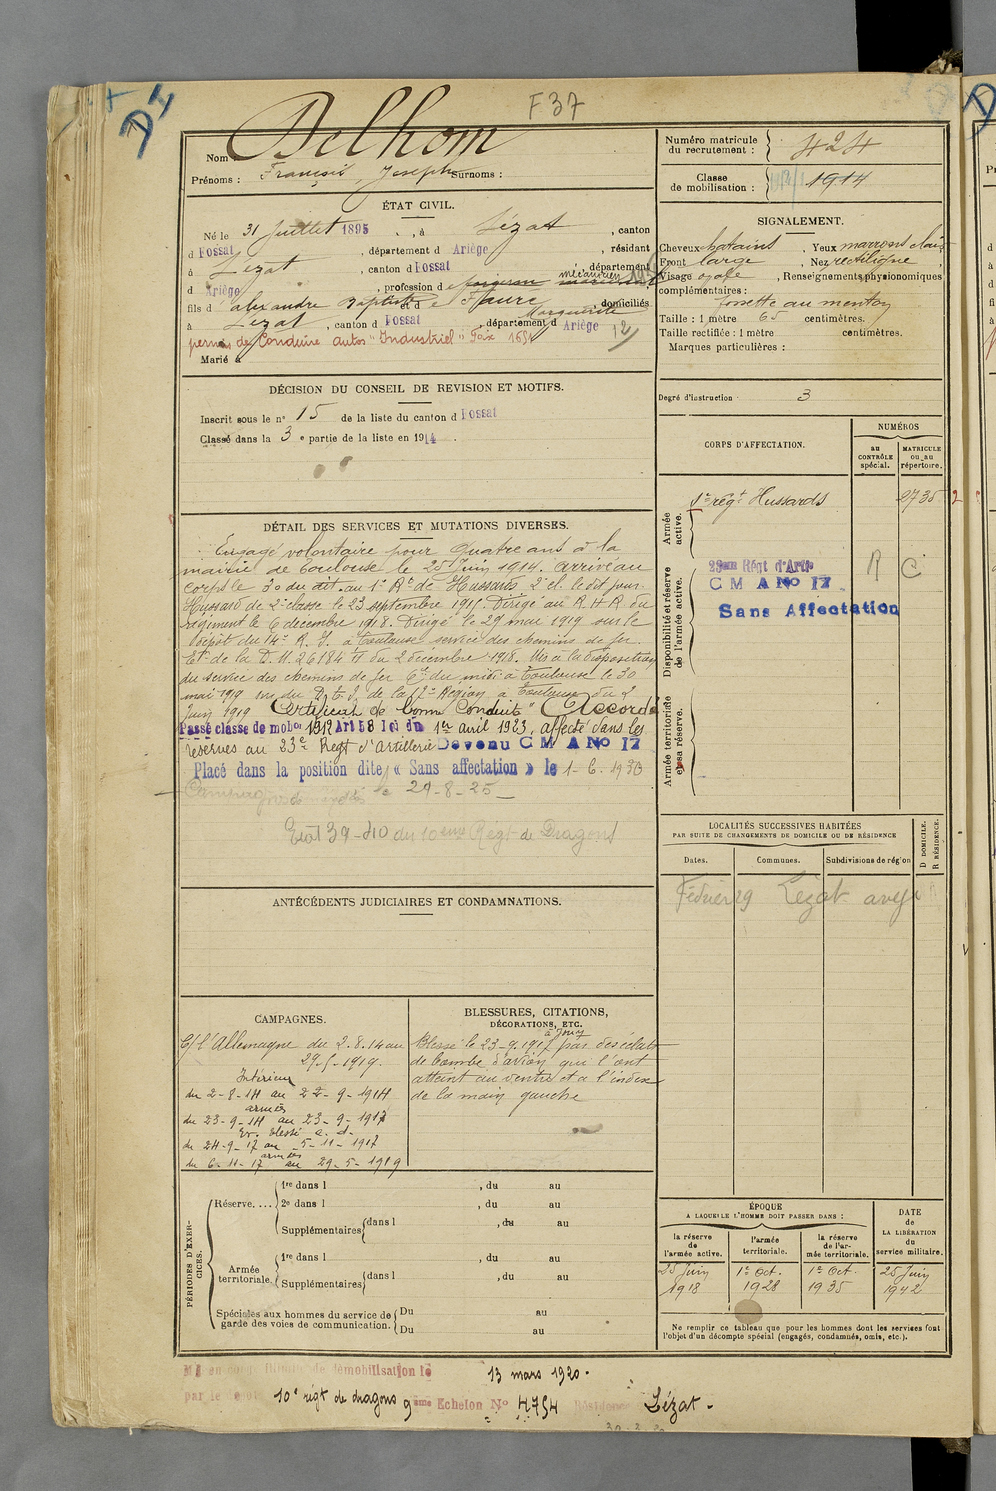 F37
Nom : Delhom
Prénoms : François, Joseph Surnoms :
Numéro matricule du recrutement : 424
Classe de mobilisation : 1914
ÉTAT CIVIL.
Né le 31 Juillet 1895, à Lézat, canton
d Fossat, département d Ariège, résidant
à Lézat, canton d Fossat, département
d Ariège, profession de forgeron mécanicien
fils d alexandre Baptiste et d e Faure Marguerite, domiciliés
à Lézat, canton d Fossat, département d Ariège
12
permis de Conduire autos "Industriel"
Marié à
SIGNALEMENT.
Cheveux chatains. Yeux marrons clairs
Front large, Nez rectiligne
Visage ovale, Renseignements physionomiques
complémentaires :
fossette au menton
Taille : 1 mètre 65 centimètres.
Taille rectifiée : 1 mètre centimètres.
Marques particulières :
Degré d'instruction 3
DÉCISION DU CONSEIL DE REVISION ET MOTIFS.
Inscrit sous le n° 15 de la liste du canton d Fossat
Classé dans la 3 e partie de la liste en 1914.
CORPS D'AFFECTATION.
NUMÉROS
AU CONTRÔLE spécial.
MATRICULE ou au répertoire.
Armée active.
1er régt Hussards 2735
Disponibilité et réserve de l'armée active.
23ème Régt d'Artie
C M A No 17
R C
Sans Affectation
Armée territoriale et sa réserve.
DÉTAIL DES SERVICES ET MUTATIONS DIVERSES.
Engagé volontaire pour quatre ans à la
mairie de Toulouse le 25 Juin 1914. arrivé au
corps le 30 du dit. au 1er Rt de Hussards 2e cl. le dit jour.
Hussard de 2e classe le 23 septembre 1915. Dirigé au R.H.R. du
régiment le 6 decembre 1918. Dirigé le 29 mai 1919 sur le
dépôt du 14e R.I. à Toulouse service des chemins de fer
Et de la D.M. 26184 du 2 décembre 1918. Mis à la disposition
du service des chemins de fer Cie du midi à Toulouse le 30
mai 1919 de la 17e Région à Toulouse du 2
Juin 1919 Certificat de bonne Conduite "Accordé"
Passé classe de mobon 1912 Art 58 loi du 1er avril 1923, affecté dans les
réserves au 23e Regt d'Artillerie Devenu C M A No 17
Placé dans la position dite « Sans affectation » le 1-6-1933
le 29-8-25
Etat 39-40 du 10ème Régt de Dragons
LOCALITÉS SUCCESSIVES HABITÉES
PAR SUITE DE CHANGEMENTS DE DOMICILE OU DE RÉSIDENCE
Dates. Communes. Subdivisions de région
D DOMICILE. R RÉSIDENCE.
Février 29 Lezat
ANTÉCÉDENTS JUDICIAIRES ET CONDAMNATIONS.
CAMPAGNES.
C/ l'Allemagne du 2.8.14 au
29-5-1919.
Intérieur
du 2-8-14 au 22-9-1914
armées
du 23-9-14 au 23-9-1917
Ev. blessé
du 24-9-17 au 5-11-1917
armées
du 6-11-17 au 29-5-1919
BLESSURES, CITATIONS,
DÉCORATIONS, ETC.
à Jouy
Blessé le 23-9-1917 par des éclats
de bombe d'avion qui l'ont
atteint au ventre et à l'index
de la main gauche
PÉRIODES D'EXERCICES.
Réserve....
1re dans l , du au
2e dans l , du au
Supplémentaires dans l , du au
Armée territoriale.
1re dans l , du au
Supplémentaires dans l , du au
Spéciales aux hommes du service de garde des voies de communication.
Du au
Du au
ÉPOQUE
A LAQUELLE L'HOMME DOIT PASSER DANS :
la réserve de l'armée active.
l'armée territoriale.
la réserve de l'armée territoriale.
DATE DE LA LIBÉRATION du service militaire.
25 Juin 1918
1er Oct. 1928
1er Oct. 1935
25 Juin 1942
Ne remplir ce tableau que pour les hommes dont les services font
l'objet d'un décompte spécial (engagés, condamnés, omis, etc.).
démobilisation le 13 mars 1920.
par le 10e régt de dragons 9ème Echelon No 4754 Résidence Lézat.